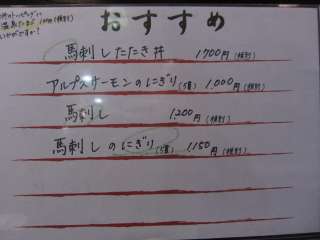 おすすめ
温泉たまご 100円(税別)
いかがですか!
馬刺したたき丼 1700円(税別)
アルプスサーモンのにぎり(5貫) 1,000円(税別)
馬刺し 1,200円(税別)
馬刺しのにぎり(5貫) 1150円(税別)